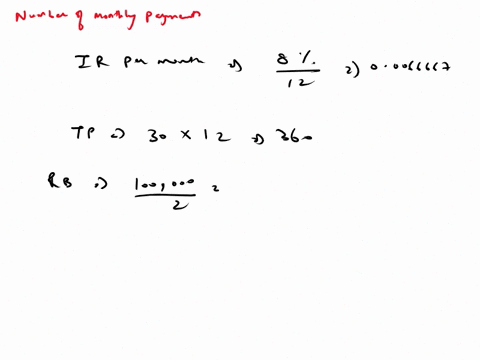 Number of monthly payments
IR per month ⇒ 8 % / 12 ⇒ 0.0066667
TP ⇒ 30 × 12 ⇒ 360
RB ⇒ 100,000 / 2 =